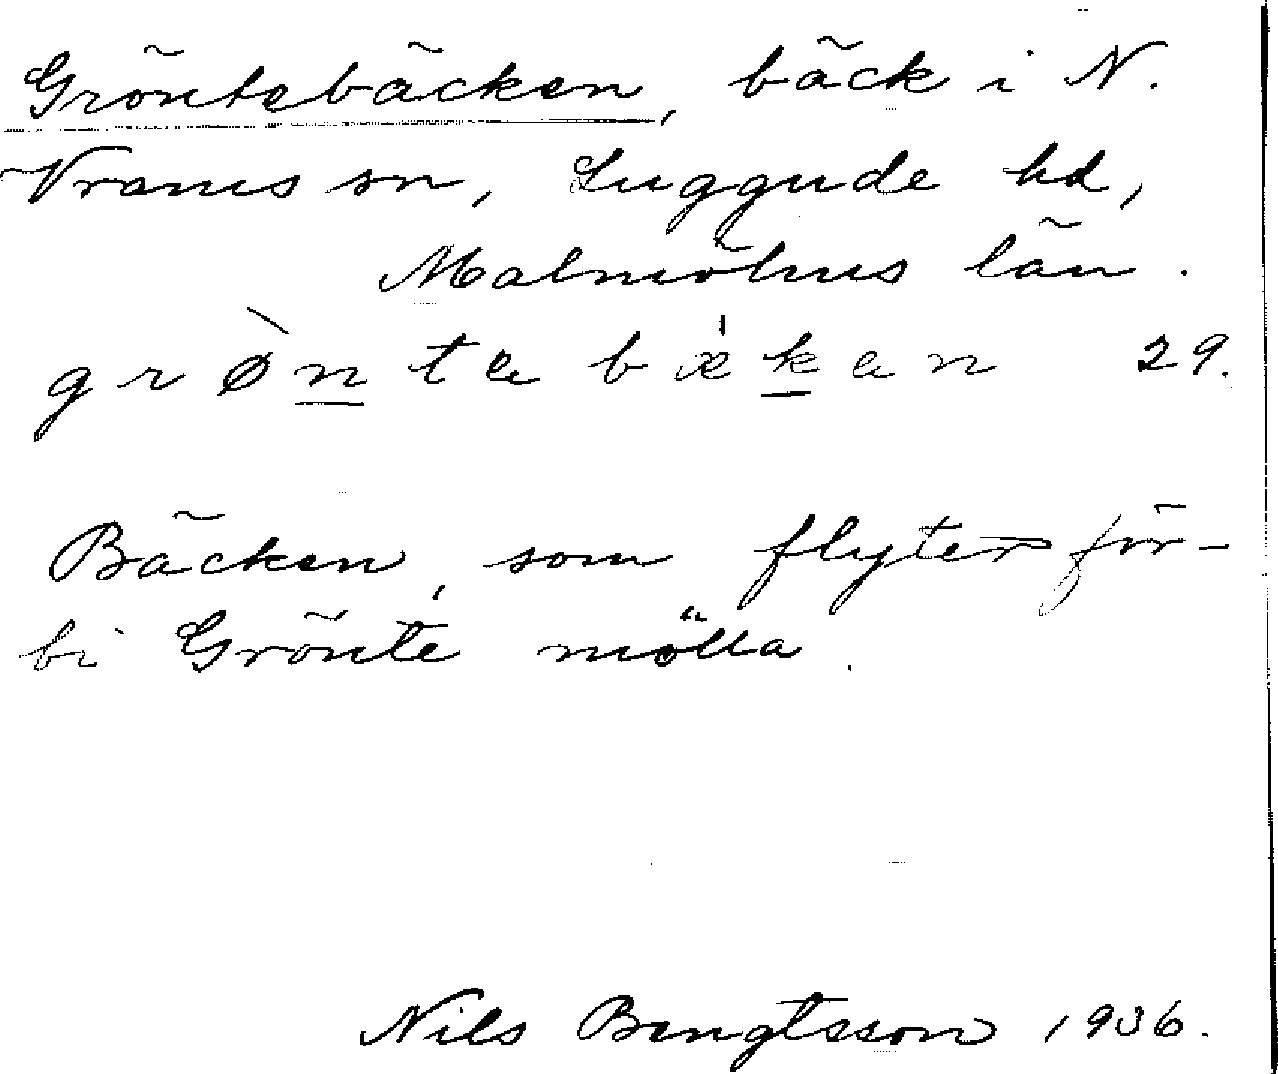 Gröntebäcken, bäck i N.
Vrams sn, Luggude hd,
Malmöhus län.
grøǹte bæ'ken 29.
Bäcken, som flyter för-
bi Grönte mölla.
Nils Bengtsson 1936.